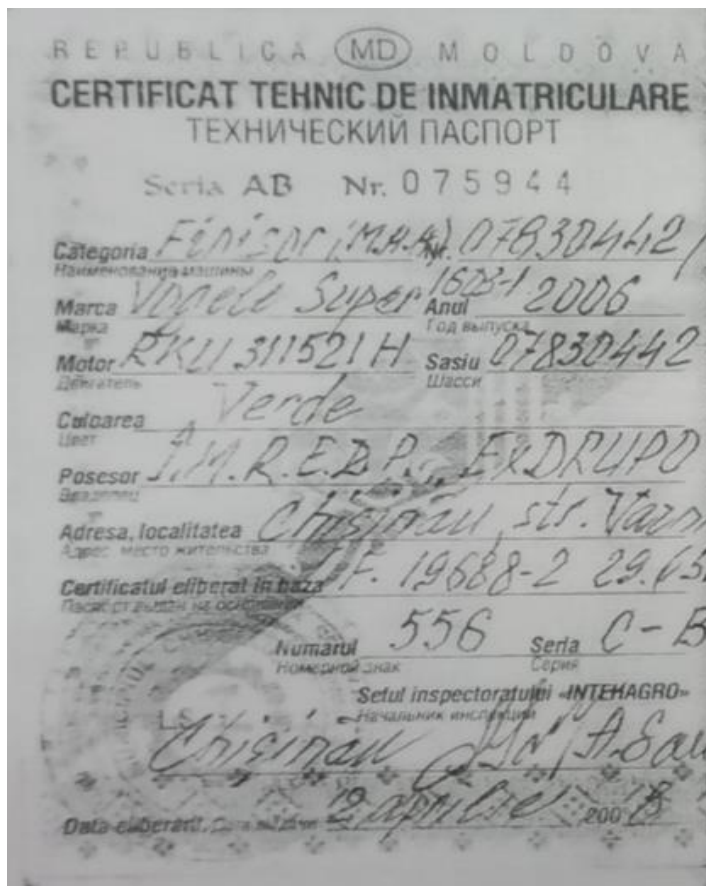 REPUBLICA MD MOLDOVA
CERTIFICAT TEHNIC DE INMATRICULARE
ТЕХНИЧЕСКИЙ ПАСПОРТ
Seria AB Nr. 075944
Categoria Finisor (M.A.A) Nr. 07830442
Наименование машины
Marca Vogele Super 1603-1 Anul 2006
Марка Год выпуска
Motor RKU 311521H Sasiu 07830442
Двигатель Шасси
Culoarea Verde
Цвет
Posesor Î.M.R.E.D.P. "EXDRUPO
Владелец
Adresa, localitatea Chisinău, str.
Адрес, место жительства
Certificatul eliberat în baza F. 19688-2
Паспорт выдан на основании
Numarul 556 Seria C-B
Номерной знак Серия
Setul inspectoratului «INTEHAGRO»
Начальник инспекции
L.S.
Chisinau
Data eliberării, Дата выдачи 2 aprilie 200